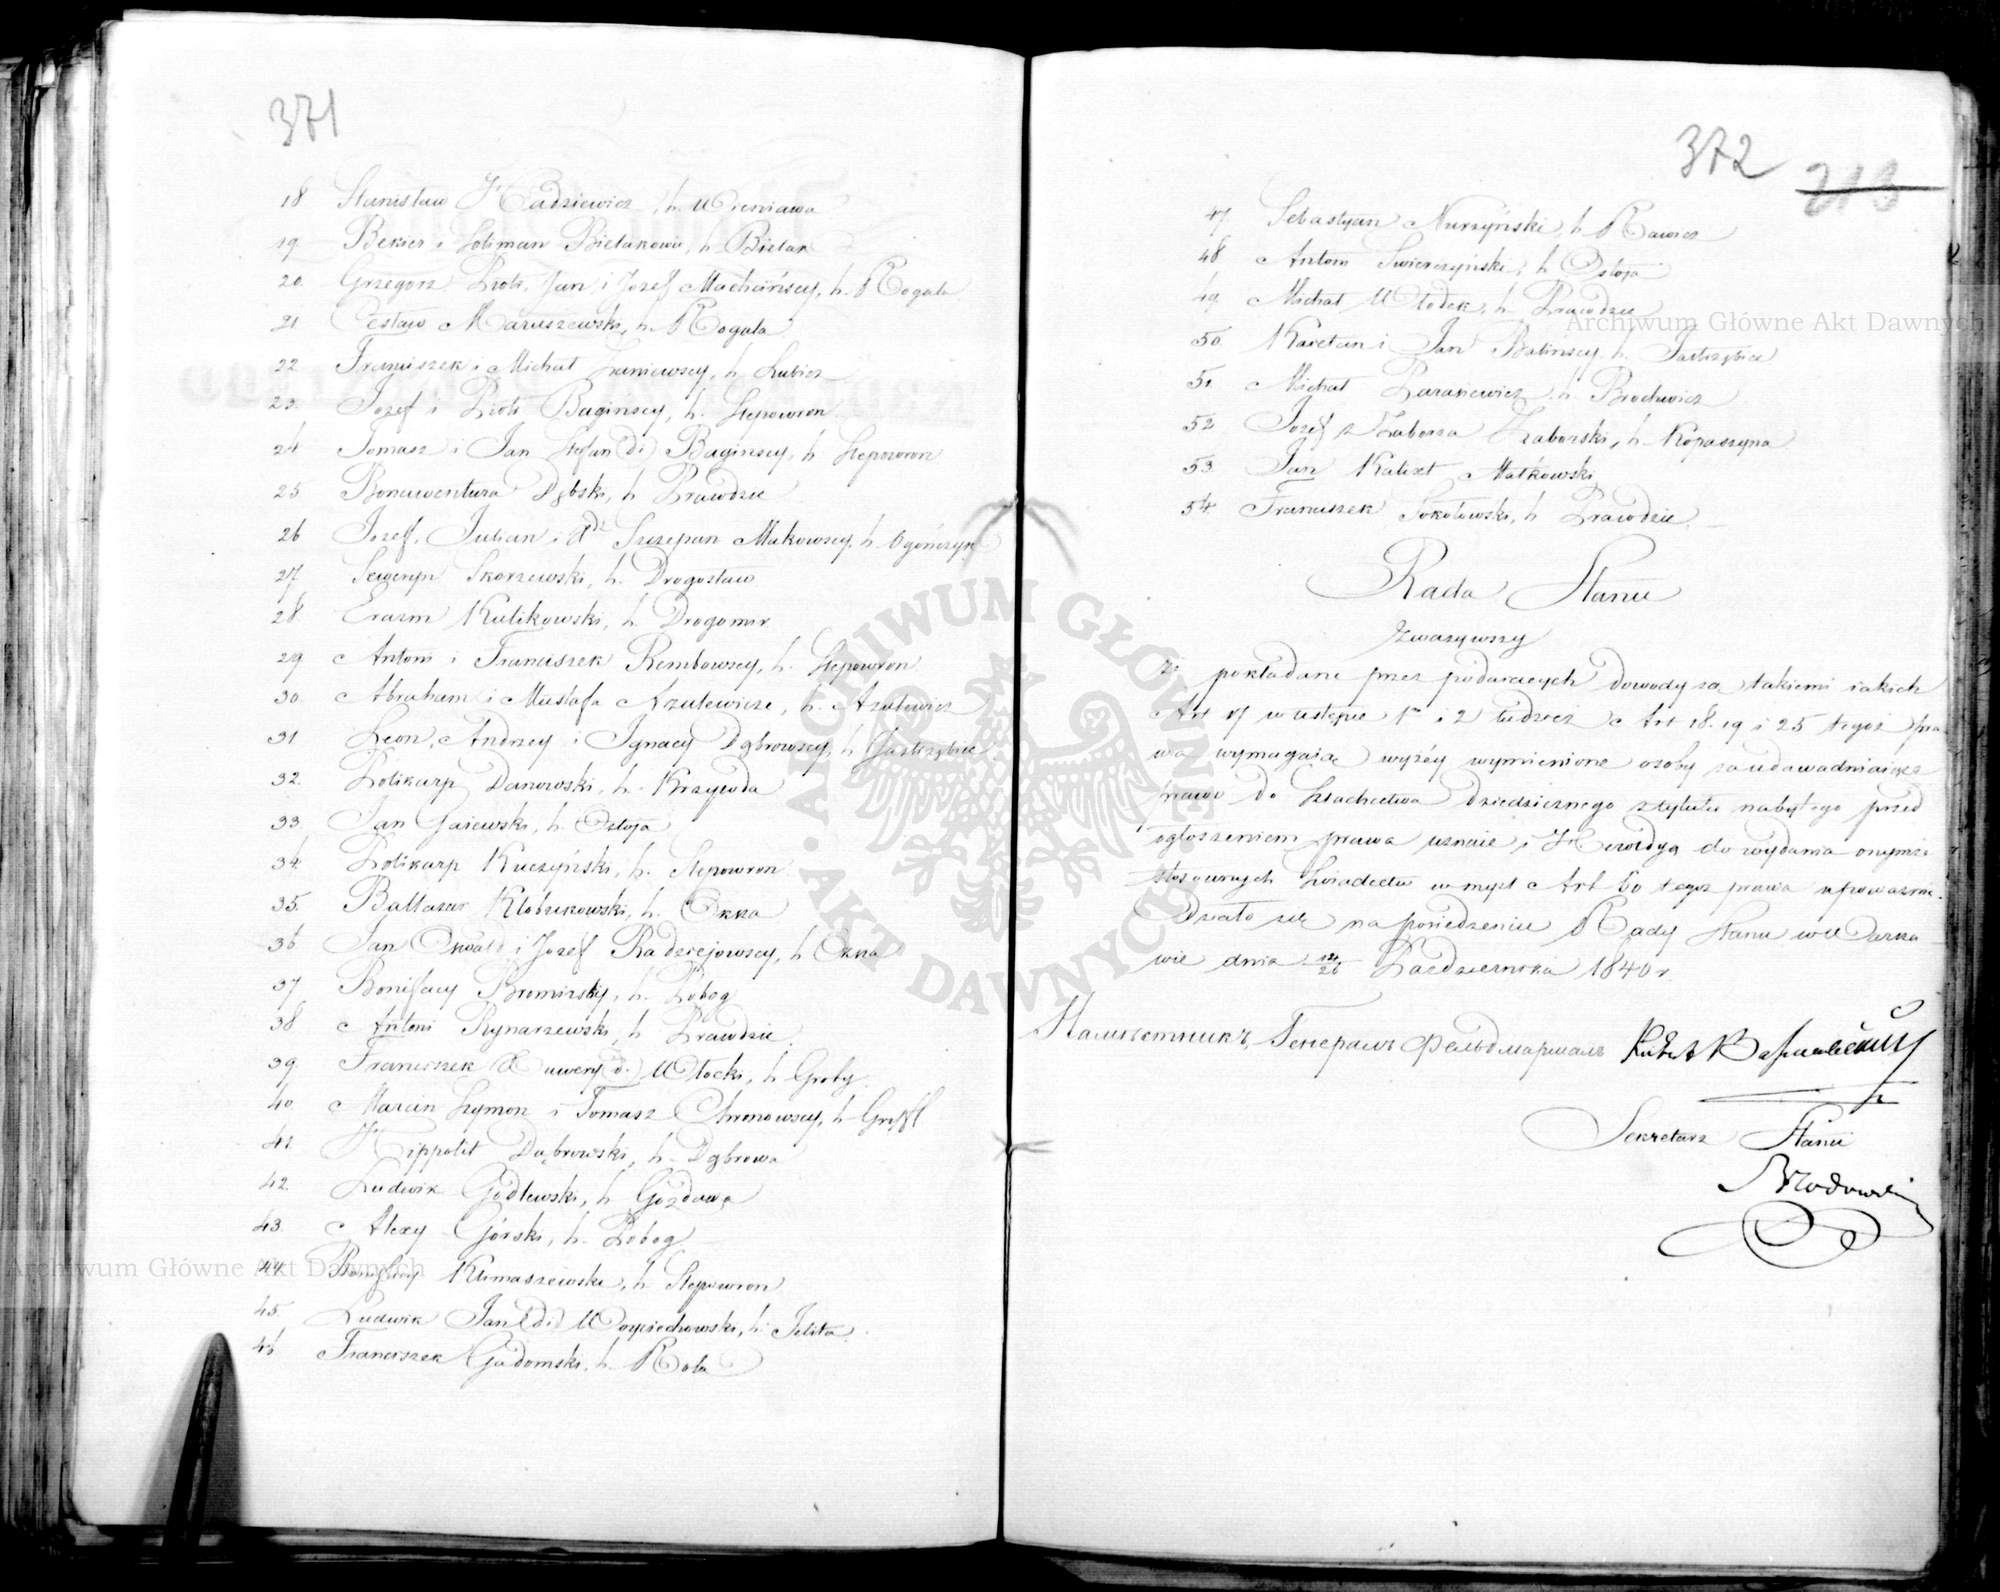 371
18 Stanisław Hadziewicz, h. Wieniawa
19 Bekier i Soliman Bielakowie, h. Bielak
20. Grzegorz, Piotr, Jan, i Jozef Machcińscy, h. Rogala
21 Cesław Maruszewski, h. Rogala
22 Franciszek i Michał Łaniewscy, h. Lubicz
23. Jozef i Piotr Baginscy, h. Slepowron
24 Tomasz i Jan Stefan (2i) Baginscy, h. Slepowron
25 Bonawentura Dąbski, h. Prawdzic
26 Jozef, Julian i Szczepan Makowscy, h. Ogończyk
27 Seweryn Skorzewski, h. Drogosław
28 Erazm Kulikowski, h. Drogomir
29 Antoni i Franciszek Rembowscy, h. Slepowron
30. Abraham i Mustafa Azulewicze, h. Azulewicz
31 Leon, Andrzey i Ignacy Dąbrowscy, h. Jastrzębiec
32. Polikarp Danowski, h. Krzywda
33. Jan Gaiewski, h. Ostoja
34. Polikarp Kuczyński, h. Slepowron
35. Baltazar Kłobukowski, h. Oksza
36 Jan Oswald i Jozef Radziejowscy, h. Oksza
37 Bonifacy Bromirski, h. Pobog
38 Antoni Rynarzewski, h. Prawdzic
39. Franciszek Xawery (2i) Włocki, h. Groty
40. Marcin Szymon i Tomasz Chronowscy, h. Gryff
41. Hippolit Dąbrowski, h. Dąbrowa
42. Ludwik Godlewski, h. Gozdawa
43. Alexy Górski, h. Pobog
44. Bonifacy Klimaszewski, h. Slepowron
45. Ludwik Jan (2i) Woyciechowski, h. Jelita
46. Franciszek Gadomski, h. Rola
372 213
47. Sebastyan Nurzyński, h. Rawicz
48 Antoni Swierczyński, h. Ostoja
49. Michał Włodek, h. Prawdzic
50. Kajetan i Jan Balińscy, h. Jastrzębiec
51. Michał Parakiewicz, h. Brochwicz
52. Jozef z Zaborza Zaborski, h. Kopaszyna
53. Jan Kalixt Małkowski
54. Franciszek Sokołowski, h. Prawdzic
Rada Stanu
Zwazywszy
że pokładane przez podaiących dowody są takiemi iakich
Art 17 w ustępie 1m i 2 tudzież Art 18. 19 i 25 tegoż pra-
wa wymagaią wyżéy wymienione osoby za udowadniaiące
prawo do Szlachectwa dziedzicznego z tytułu nabytego przed
ogłoszeniem prawa uznaie, i Heroldyą do wydania onymże
stosownych Swiadectw w myśl Art 60 tegoż prawa upoważnia.
Działo się na posiedzeniu Rady Stanu w Warsza-
wie dnia 14/26 Października 1840 r.
Намѣстникъ, Генералъ Фельдмаршалъ Князь Варшавскій
Sekretarz Stanu
Brzozowski
Archiwum Główne Akt Dawnych
Archiwum Główne Akt Dawnych
ARCHIWUM GŁÓWNE AKT DAWNYCH